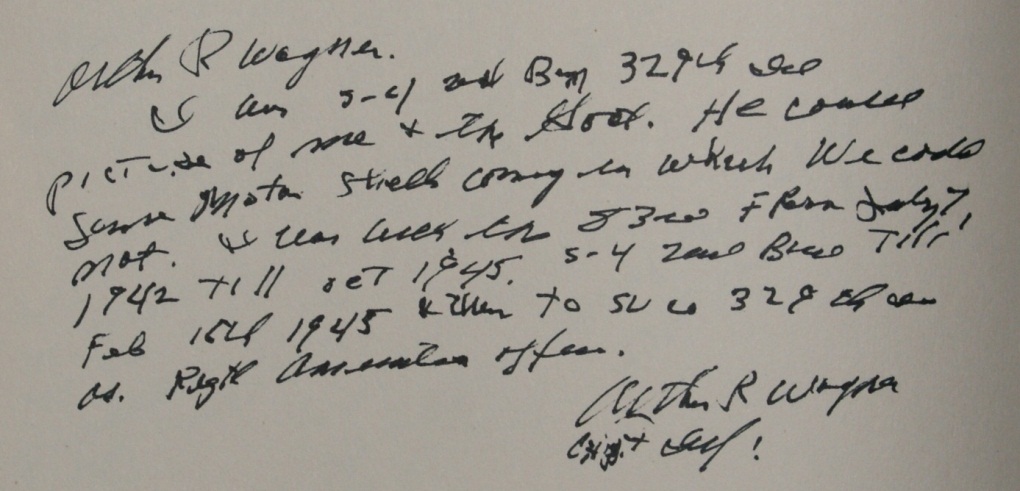 Arthur R Wagner.
I was S-4 2nd Bn 329th Inf
picture of me & the Goat. He could
sense Mortar Shells coming in which We could
not. I was with the 83rd From July 7,
1942 till Oct 1945. S-4 2nd Bn Till
Feb 15th 1945 & then to SV Co 329th Inf
as Regtl Ammunition officer.
Arthur R Wagner
Capt Inf!